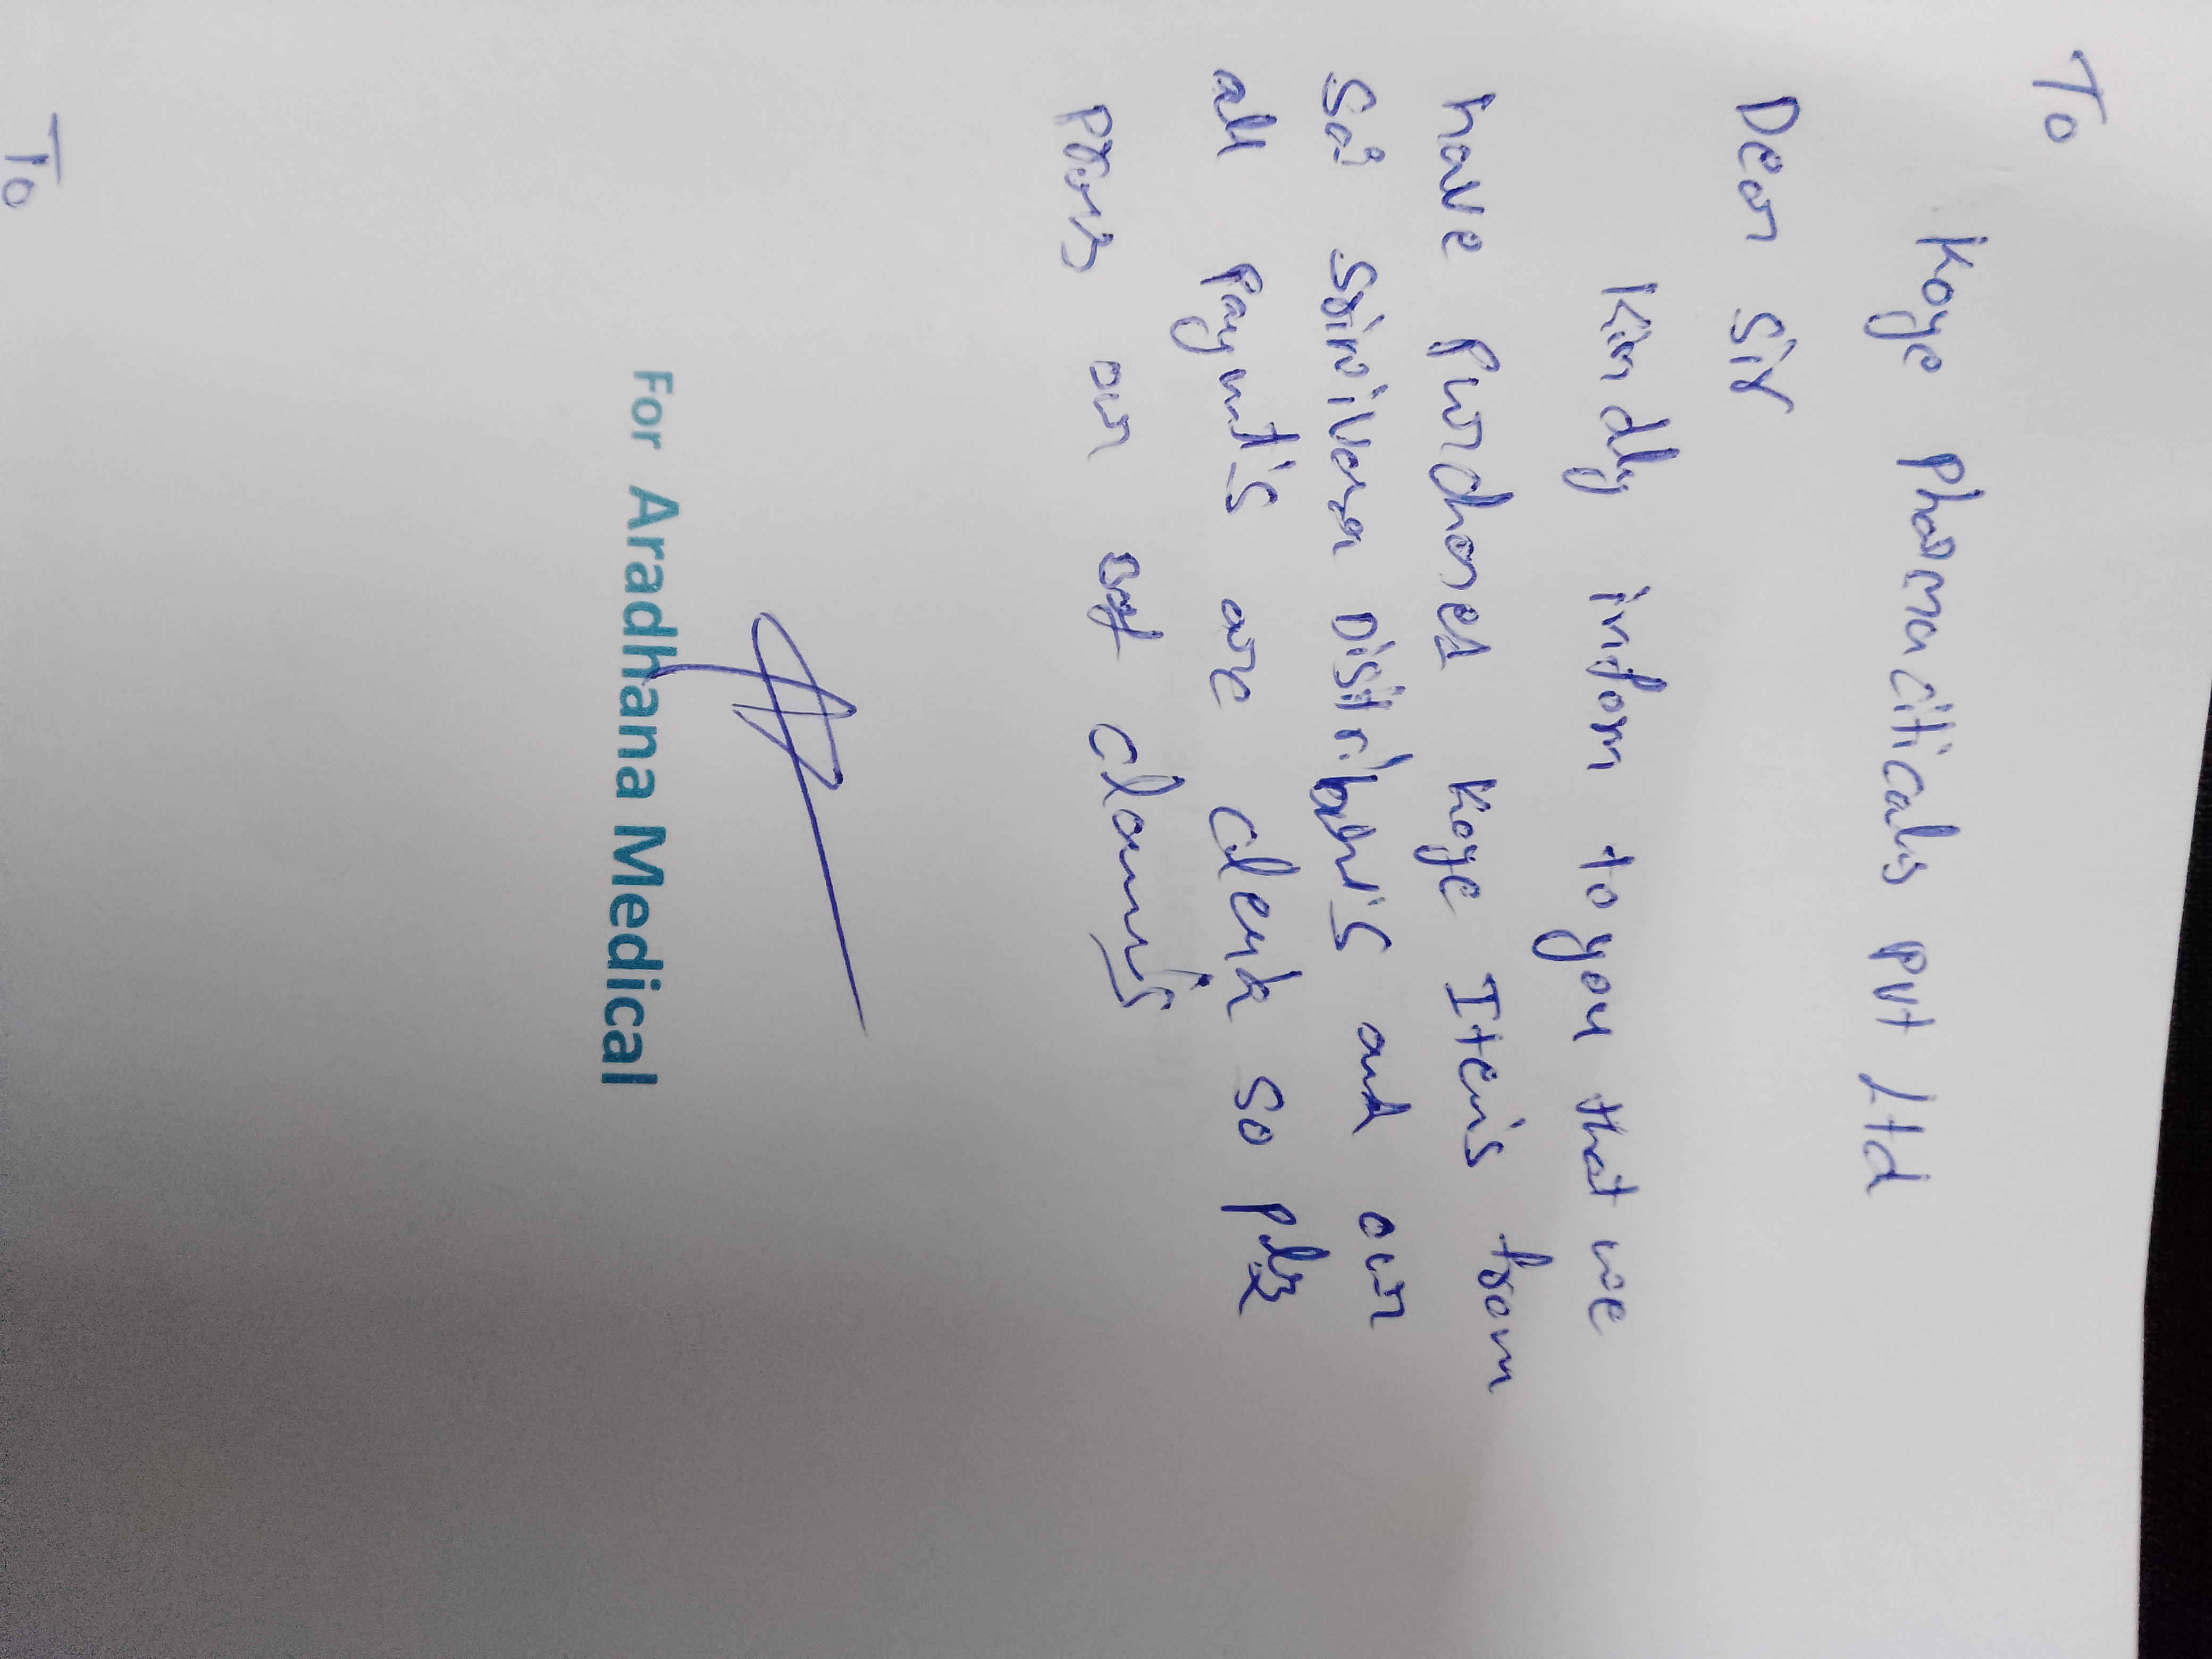 To
Koye Pharmaciticals Pvt Ltd
Dear Sir
Kindly inform to you that we
have Purchased Koye Item's from
Sai Srinivasa Distributor's and our
all Paymt's are clear so plz
our claim's
For Aradhana Medical
To